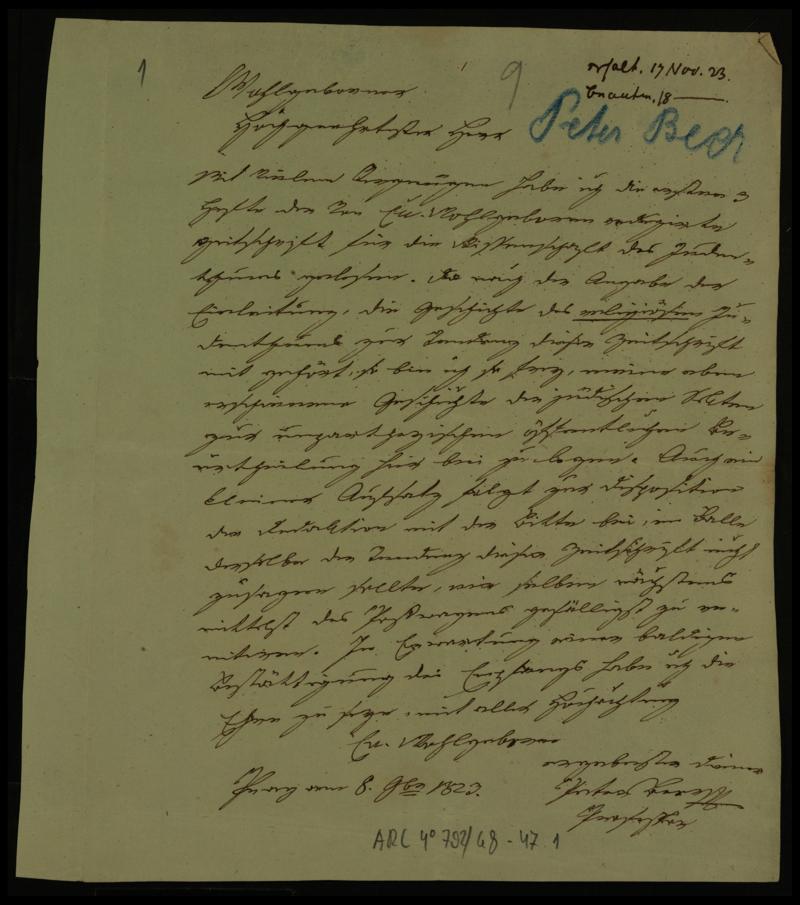 1
9
erhalt. 17 Nov. 23.
beantw. 18 —
Wohlgeborner
Hochgeehrtester Herr
Peter Beer
Mit vielem Vergnügen habe ich die ersten 3
Hefte der von Eu. Wohlgeboren redigirte
Zeitschrift für die Wissenschaft des Juden-
thums gelesen. Da nach der Angabe der
Einleitung, die Geschichte des religiösen Ju-
denthums zur Tendenz dieser Zeitschrift
mit gehört, so bin ich so frey, meine eben
erschienene Geschichte der jüdischen Sekten
zur unpartheyischen öffentlichen Be-
urtheilung hier bei zu legen. Auch ein
kleiner Aufsatz folgt zur Disposition
der Redaktion mit der Bitte bei, im Falle
derselbe der Tendenz dieser Zeitschrift nicht
zusagen sollte, mir selben nächstens
mittelst des Postwagens gefälligst zu re-
mitiren. In Erwartung einer baldigen
Bestättigung des Empfangs habe ich die
Ehre zu seyn mit aller Hochachtung
Eu. Wohlgeboren
ergebenster Diener
Prag am 8. 9ber 1823.
Peter Beer
Professor
ARC 4° 792/G8-47 1